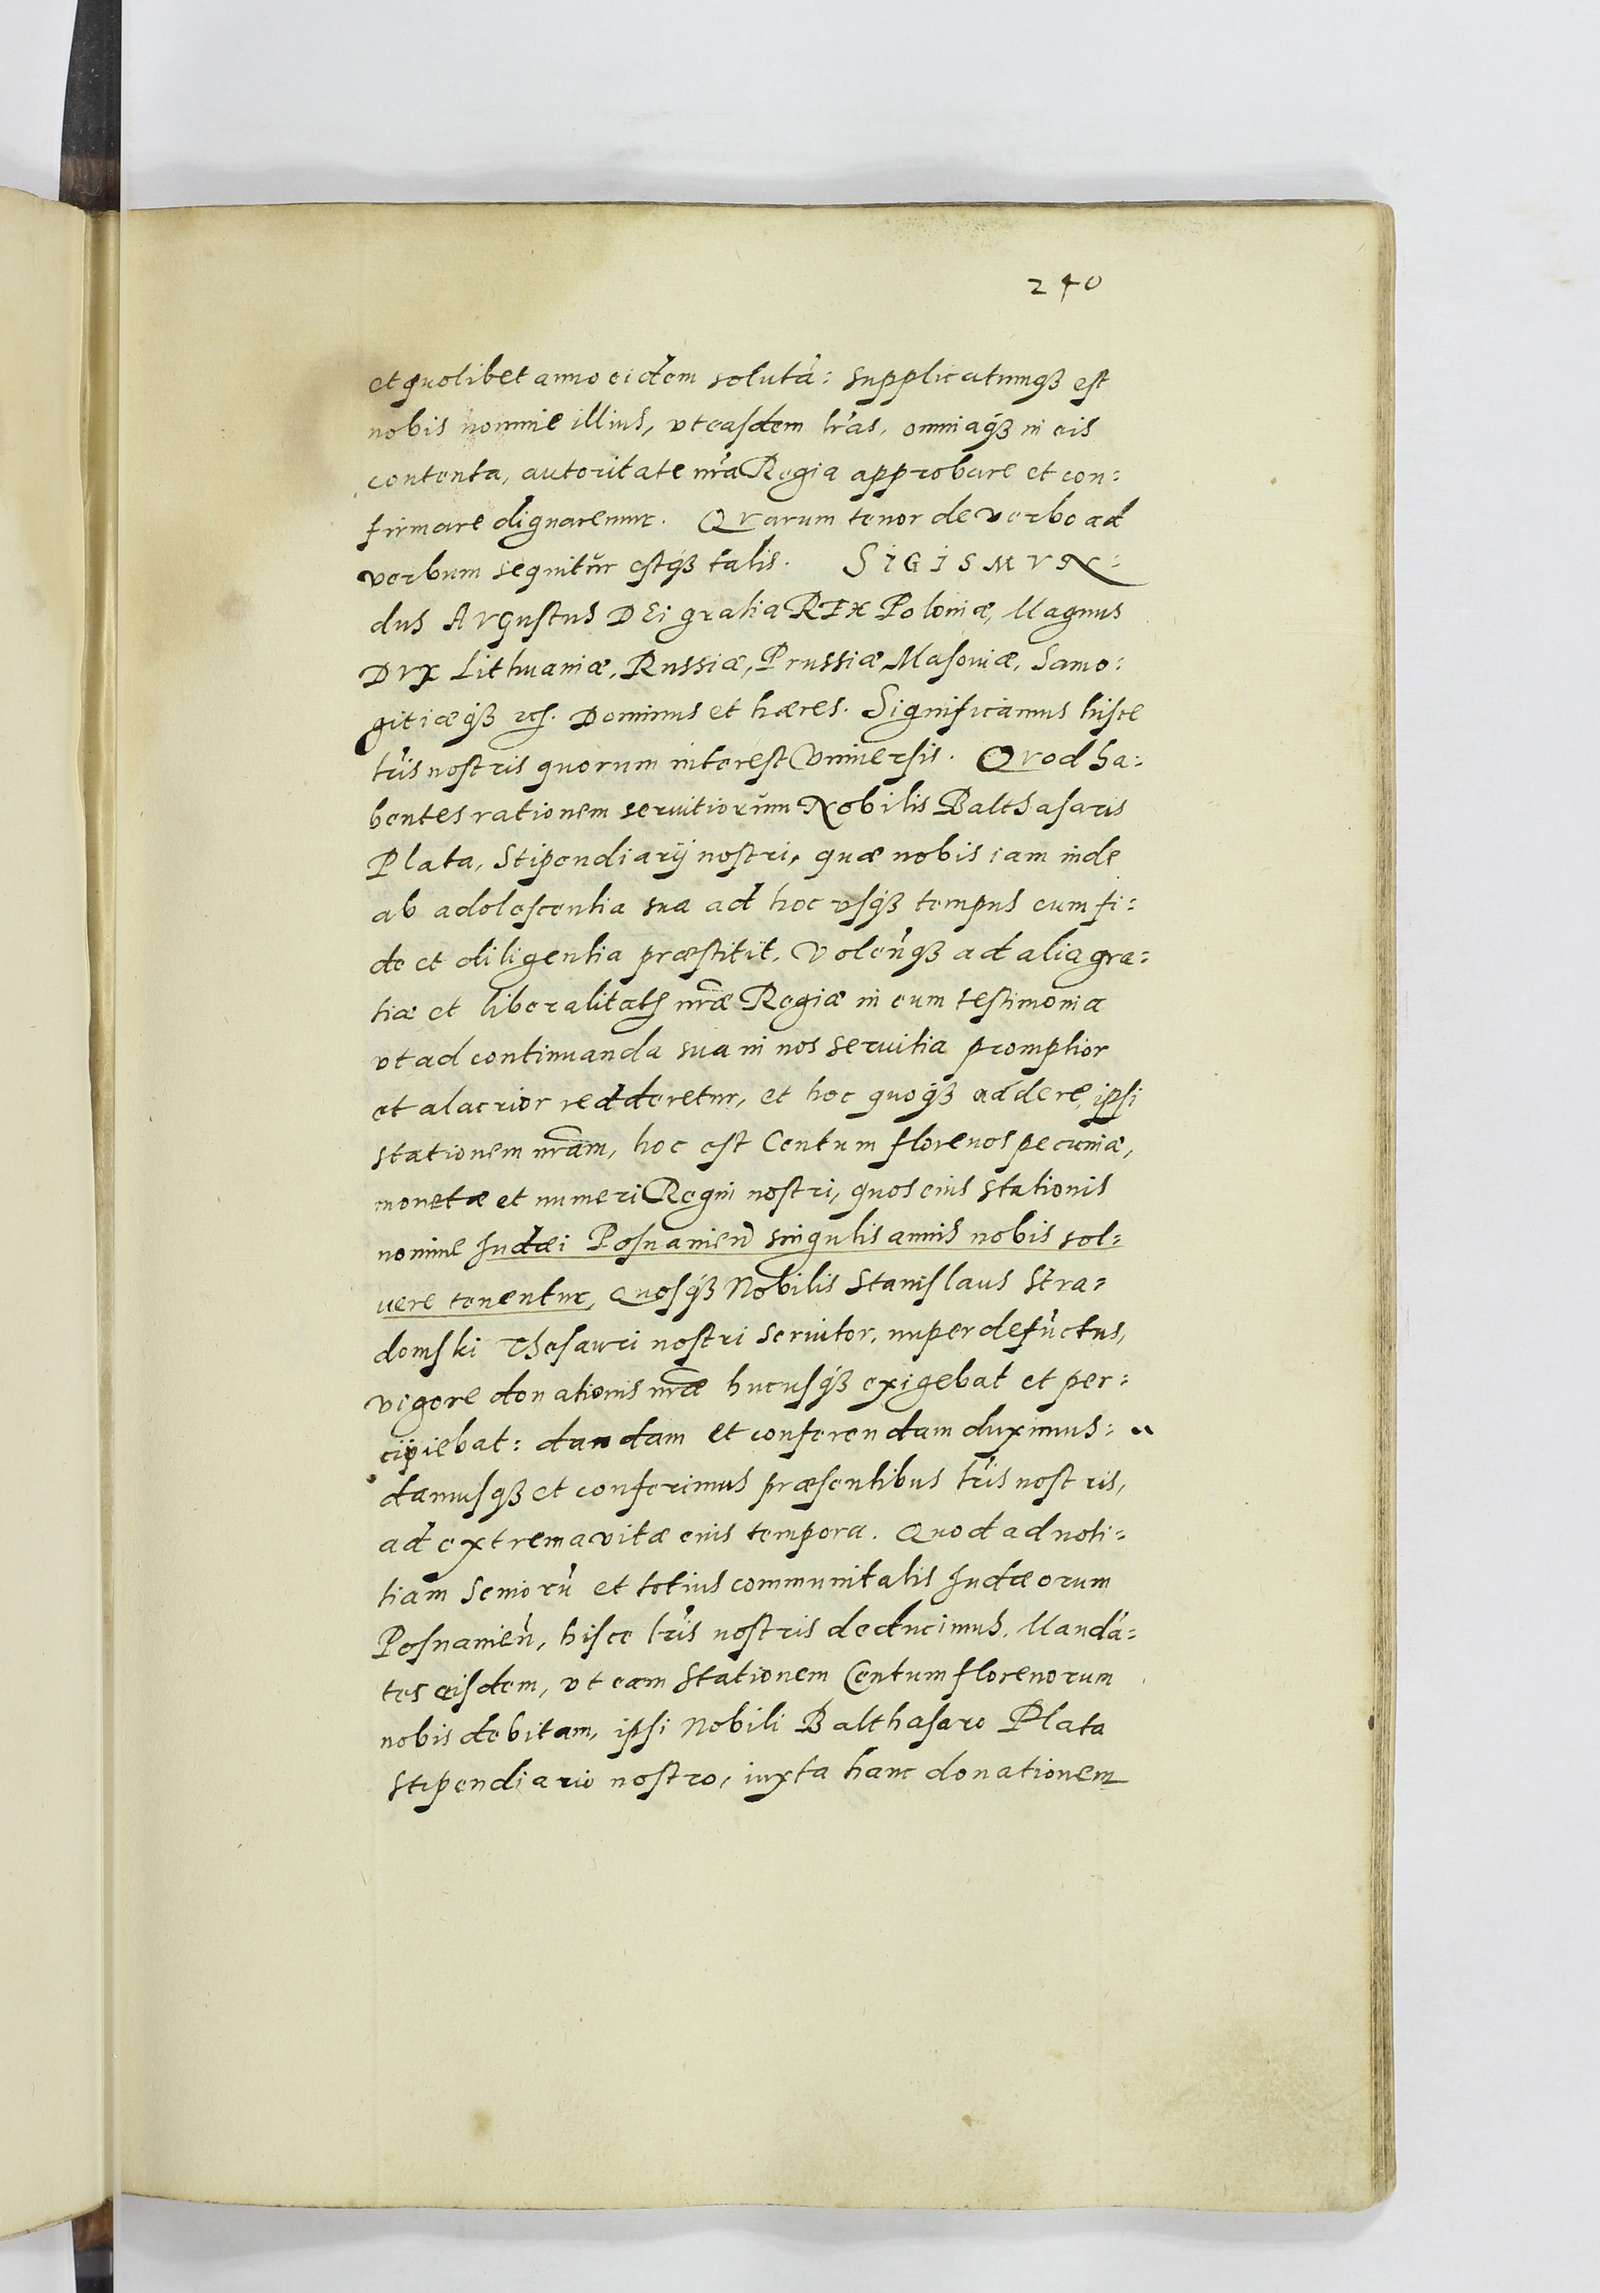 240
et quolibet anno eidem solutā: supplicatumqꝫ est
nobis nomine illius, vt easdem lr̄as, omniaqꝫ in eis
contenta, autoritate nr̄a Regia approbare et con=
firmare dignaremur. QVarum tenor de verbo ad
verbum sequitur estqꝫ talis. SIGISMVN=
dus AVGustus DEi gratia REX Poloniæ, Magnus
DVX Lithuaniæ, Russiæ, Prussiæ, Masoviæ, Samo=
gitiæqꝫ etc. Dominus et hæres. Significamus hisce
lr̄is nostris quorum interest Vniversis. QVod ha=
bentes rationem servitiorum Nobilis Balthasaris
Plata, Stipendiarij nostri, quæ nobis iam inde
ab adolescentia sua ad hoc vsqꝫ tempus cum fi=
de et diligentia præstitit, Volen̄qꝫ ad alia gra=
tiæ et liberalitatis nr̄æ Regiæ in eum testimonia
vt ad continuanda sua in nos servitia promptior
et alacrior redderetur, et hoc quoqꝫ addere, ipsi
stationem nr̄am, hoc est Centum florenos pecuniæ,
monetæ et numeri Regni nostri, quos eius stationis
nomine Judæi Posnanien̄ singulis annis nobis sol=
uere tenentur, Quosqꝫ Nobilis Stanislaus Stra=
domski Thesauri nostri servitor, nuper defūctus,
vigore donationis nr̄æ hucusqꝫ exigebat et per=
cipiebat: dandam et conferendam duximus:
damusqꝫ et conferimus præsentibus lr̄is nostris,
ad extrema vitæ eius tempora. Quod ad noti=
tiam Seniorū et totius communitatis Judæorum
Posnanien̄, hisce lr̄is nostris deducimus, Mandā=
tes eisdem, vt eam Stationem Centum florenorum
nobis debitam, ipsi Nobili Balthasaro Plata
Stipendiario nostro, iuxta hanc donationem